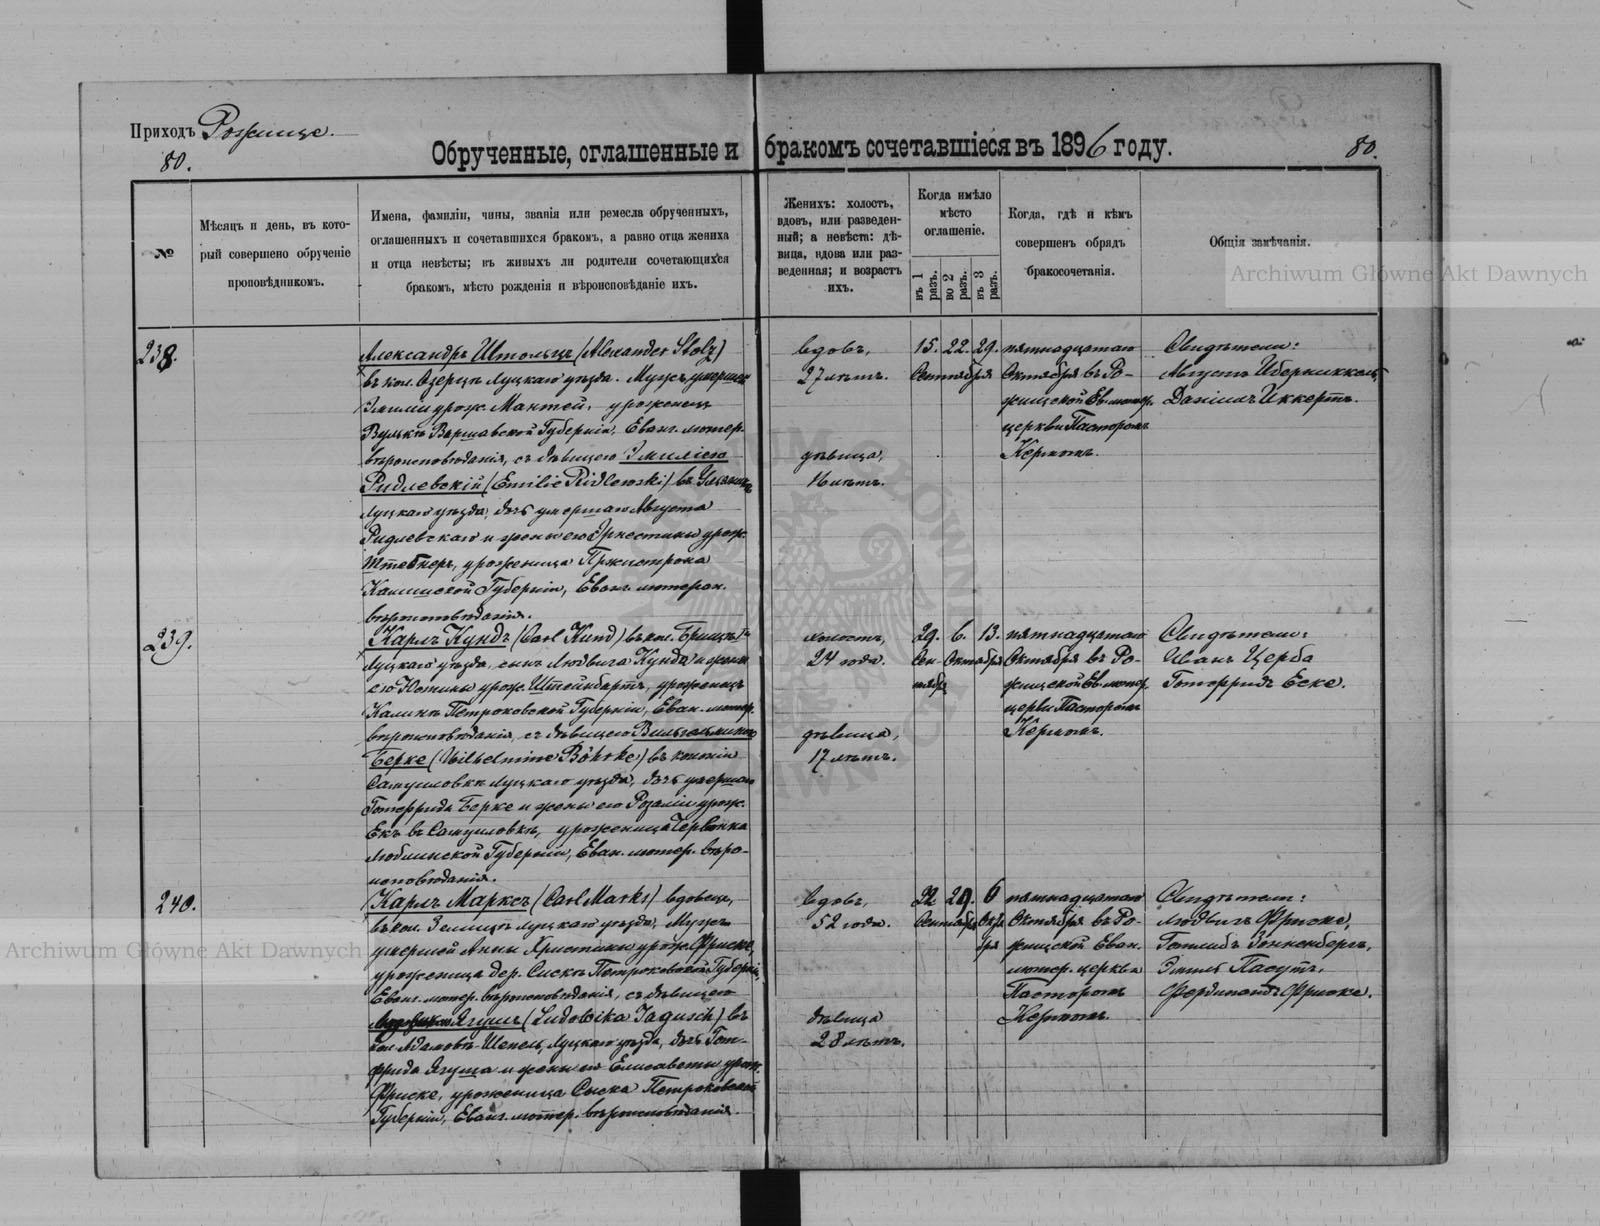 Приходъ Рожище.
80.
Обрученные, оглашенные и бракомъ сочетавшіеся въ 1896 году.
80.
№
Мѣсяцъ и день, въ кото-
рый совершено обрученіе
проповѣдникомъ.
Имена, фамиліи, чины, званія или ремесла обрученныхъ,
оглашенныхъ и сочетавшихся бракомъ, а равно отца жениха
и отца невѣсты; въ живыхъ ли родители сочетающихся
бракомъ, мѣсто рожденія и вѣроисповѣданіе ихъ.
Женихъ: холостъ,
вдовъ, или разведен-
ный; а невѣста: дѣ-
вица, вдова или раз-
веденная; и возрастъ
ихъ.
Когда имѣло
мѣсто
оглашеніе.
въ 1 разъ.
во 2 разъ.
въ 3 разъ.
Когда, гдѣ и кѣмъ
совершенъ обрядъ
бракосочетанія.
Общія замѣчанія.
Archiwum Główne Akt Dawnych
238.
Александръ Штольцъ (Alexander Stolz)
въ кол. Озерцѣ Луцкаго уѣзда. Мужъ умершей
Эмиліи урож. Мантей, уроженецъ
Вулькѣ Варшавской Губерніи, Еванг. лютер.
вѣроисповѣданія, съ дѣвицею Эмиліею
Ридлевскій (Emilie Ridlewski) въ
Луцкаго уѣзда, дочь умершаго Августа
Ридлевскаго и жены его Эрнестины урож.
Штебнеръ, уроженица
Калишской Губерніи, Еванг. лютеран.
вѣроисповѣданія.
вдовъ,
27 лѣтъ.
дѣвица,
16 лѣтъ.
15. 22. 29.
Сентября
пятнадцатаго
Октября въ Ро-
жищской Ев. лютер.
церкви Пасторомъ
Кермомъ.
Свидѣтели:
Августъ Иберниккель,
Даніилъ Иккертъ.
239.
Карлъ Кундъ (Carl Kund) въ кол.
Луцкаго уѣзда, сынъ Людвига Кунда и жены
его Юстины урож. Штейнбартъ, уроженецъ
Калинѣ Петроковской Губерніи, Еван. лютер.
вѣроисповѣданія, съ дѣвицею Вильгельминою
Берке (Wilhelmine Böhrke) въ колоніи
Самуиловкѣ Луцкаго уѣзда, дочь умершаго
Готфрида Берке и жены его Розаліи урож.
Екъ въ Самуиловкѣ, уроженица Червонка
Люблинской Губерніи, Еван. лютер. вѣро-
исповѣданія.
холостъ,
24 года.
дѣвица,
17 лѣтъ.
29. 6. 13.
Сен-
тября
Октября
пятнадцатаго
Октября въ Ро-
жищской Ев. лютер.
церкви Пасторомъ
Кермомъ.
Свидѣтели:
Иванъ Церба
Готфридъ Еске.
240.
Карлъ Марксъ (Carl Marks) вдовецъ,
въ кол. Земицѣ Луцкаго уѣзда, Мужъ
умершей Анны Христины урож. Фриске,
уроженица дер. Сискъ Петроковской Губерніи,
Еванг. лютер. вѣроисповѣданія, съ дѣвицею
Ягушъ (Ludowika Jagusch) въ
кол. Адамовъ-Шепель, Луцкаго уѣзда, дочь Гот-
фрида Ягуша и жены его Елисаветы урож.
Фриске, уроженица Сыска Петроковской
Губерніи, Еванг. лютер. вѣроисповѣданія.
вдовъ,
52 года.
дѣвица
28 лѣтъ.
22. 29. 6
Сентября
Октя-
бря
пятнадцатаго
Октября въ Ро-
жищской Еван.
лютер. церкви
Пасторомъ
Кермомъ.
Свидѣтели:
Людвигъ Фриске,
Готлибъ Зонненбергъ,
Эмиль Пасутъ,
Фердинандъ Фриске.
Archiwum Główne Akt Dawnych